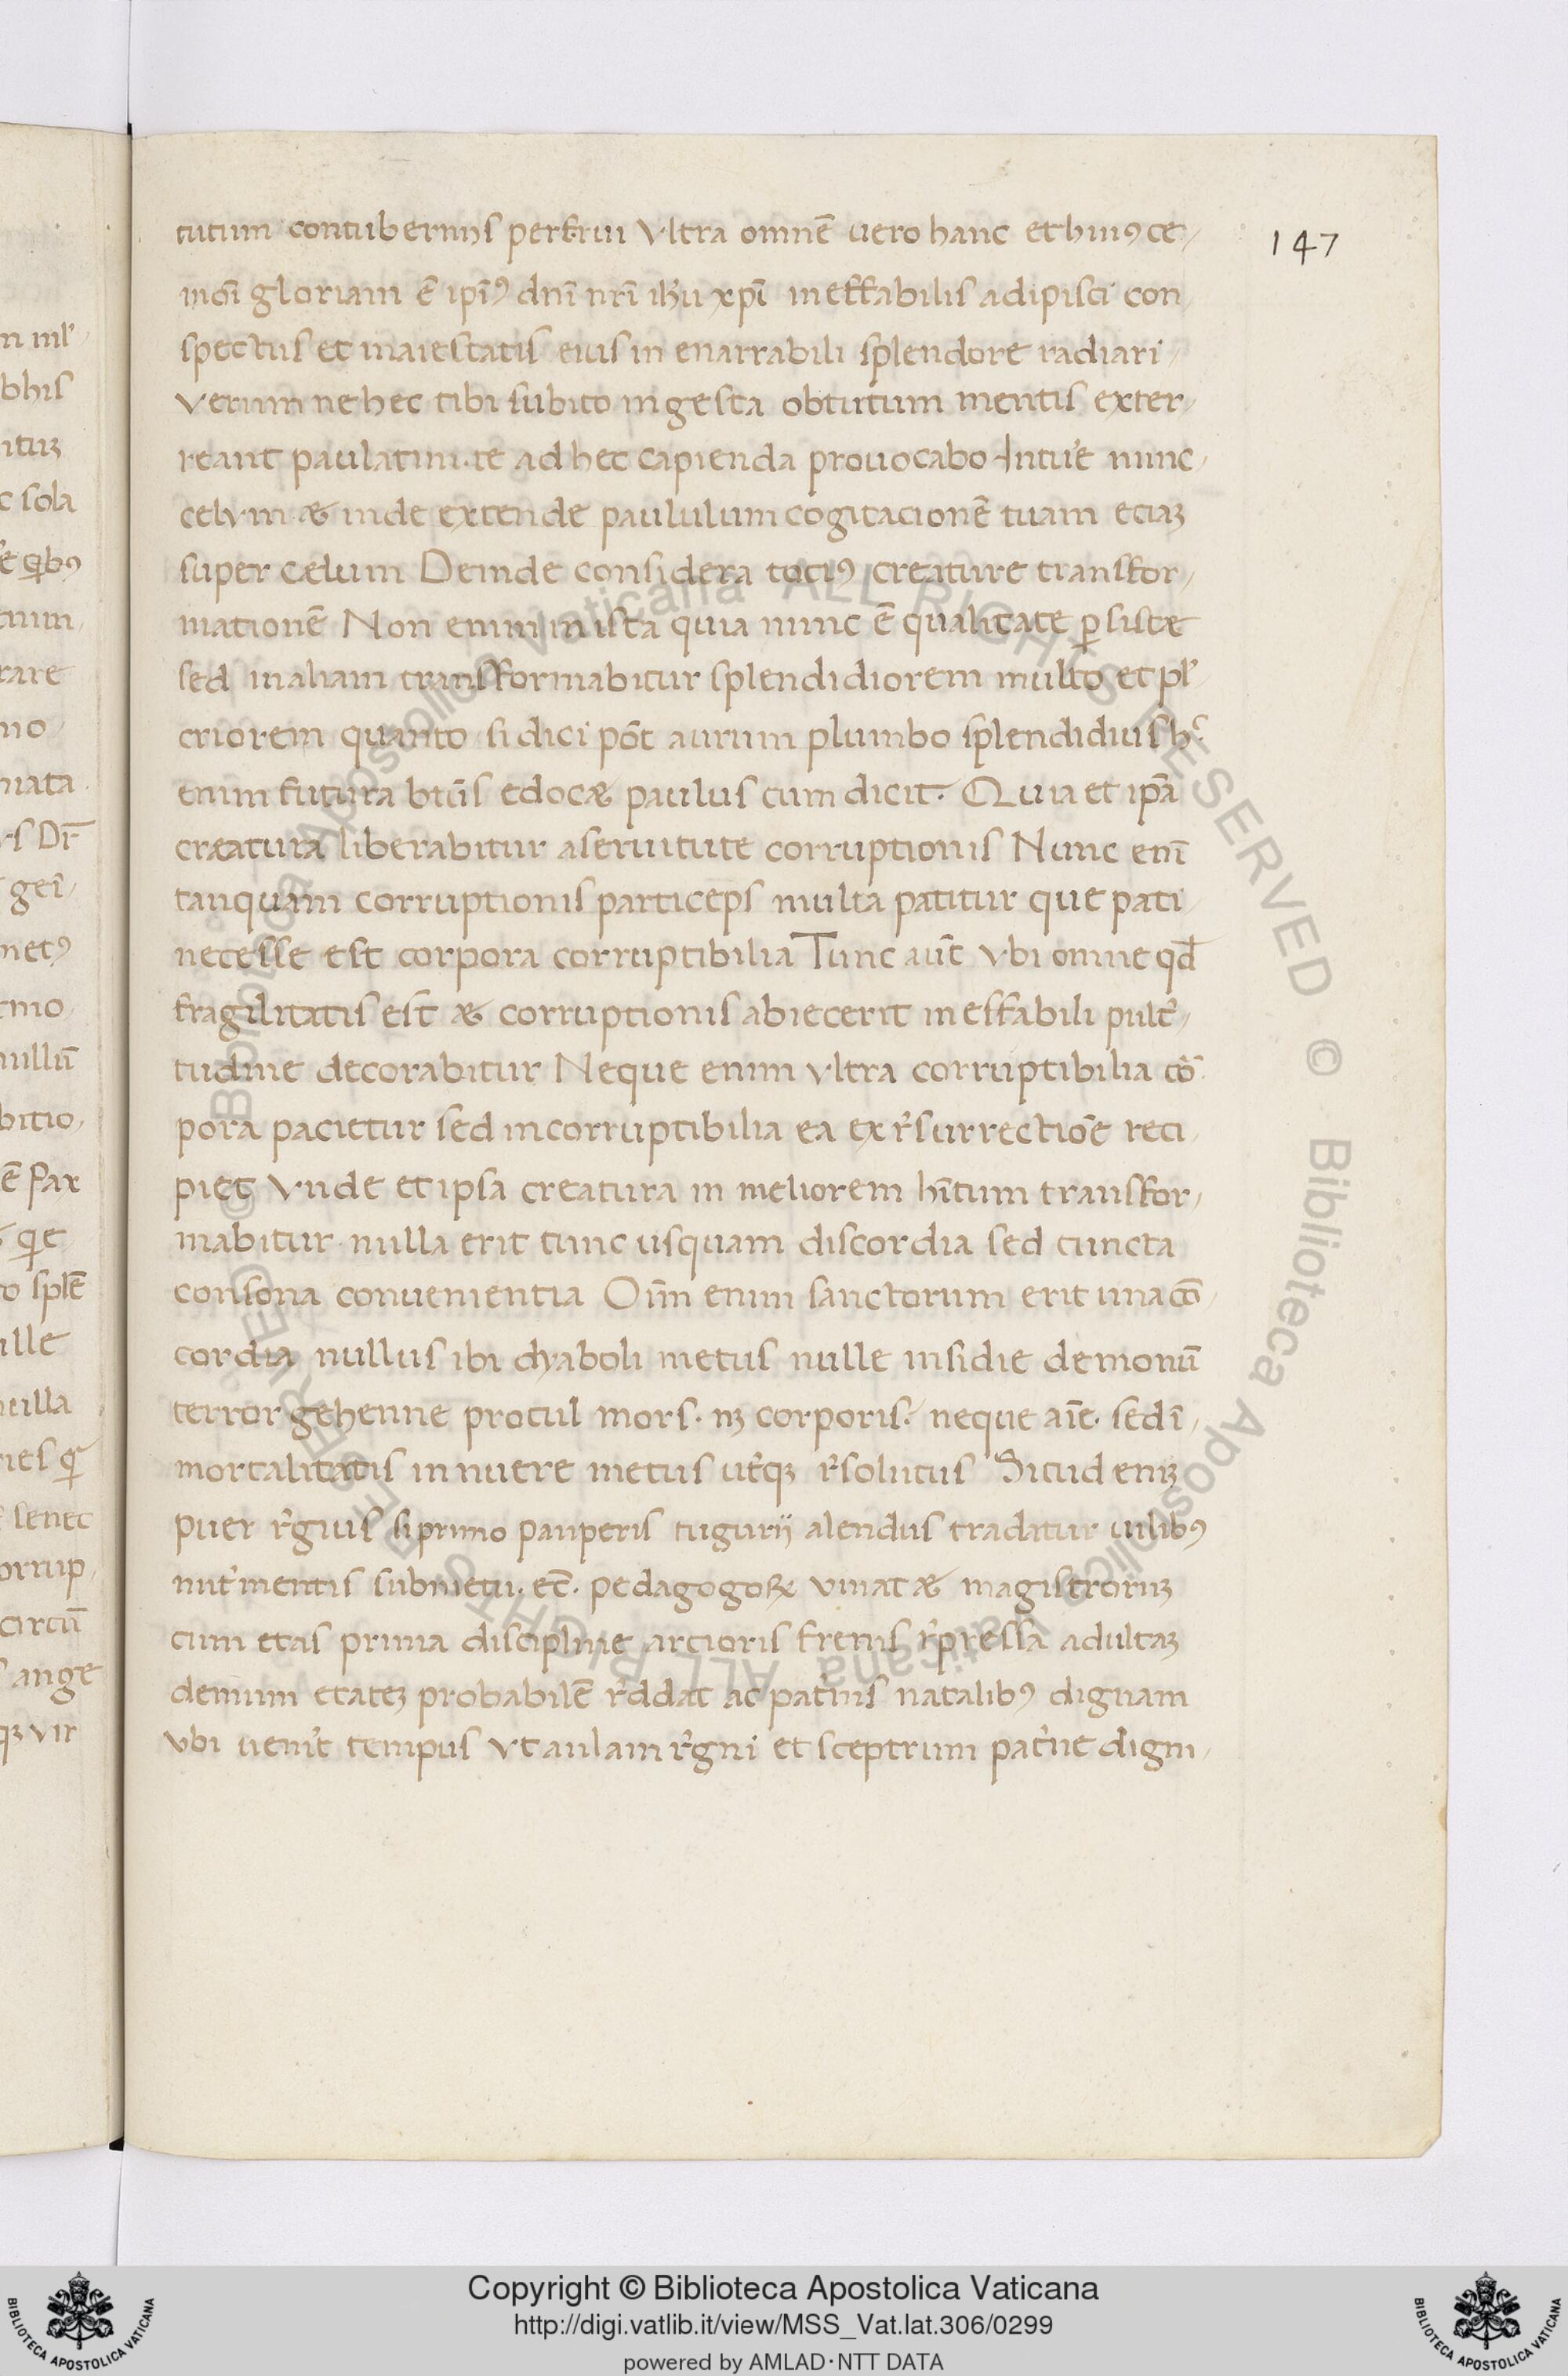 147
tutum contuberniis perfrui vltra omnē uero hanc et huiꝰce
mōi gloriam ē ip̄iꝰ dn̄i nr̄i ih̄u xp̄i ineffabilis adipisci con
spectus et maiestatis eius in enarrabili splendore radiari
verum ne hec tibi subito ingesta obtutum mentis exter
reant paulatim. te ad hec capienda prouocabo Intue nunc
celvm æ inde extende paululum cogitacionē tuam eciaꝫ
super celum Deinde considera tociꝰ creature transfor
mationē Non enim in ista quia nunc ē qualitate ꝑsiste
sed in aliam transfformabitur splendidiorem multo et pl̓
criorem quanto si dici pōt aurum plumbo splendidius hͨ
enim futura btūs edocæ paulus cum dicit. Quia et ip̄a
creatura liberabitur a seruitute corruptionis Nunc enī
tanquam corruptionis particeps multa patitur que pati
necesse est corpora corruptibilia Tunc aūt vbi omne qd̄
fragilitatis est æ corruptionis abiecerit ineffabili pulc̓
tudine decorabitur Neque enim vltra corruptibilia cō
pora pacietur sed incorruptibilia ea ex r̓surrectiōe reci
piet vnde et ipsa creatura in meliorem hītum transfor
mabitur nulla erit tunc usquam discordia sed cuncta
consona conuenientia Oīm enim sanctorum erit una cō
cordia nullus ibi dyaboli metus nulle insidie demonū
terror gehenne procul mors. nꝫ corporis. neque aīe. sed ī
mortalitatis in nuere metus ut̓qꝫ r̓solutus Sicud eniꝫ
puer r̓gius si primo pauperis tugurij alendus tradatur uilibꝰ
nut̓mentis sub metu. ec̄. pedagogoꝝ viuat æ magistroruꝫ
cum etas prima discipline arcioris frenis r̓pressa adultaꝫ
demum etateꝫ probabilē r̓ddat ac pat̓nis natalibꝰ dignam
vbi uenit̓ tempus vt aulam r̓gni et sceptrum pat̓ne digni
Copyright © Biblioteca Apostolica Vaticana
http://digi.vatlib.it/view/MSS_Vat.lat.306/0299
powered by AMLAD·NTT DATA